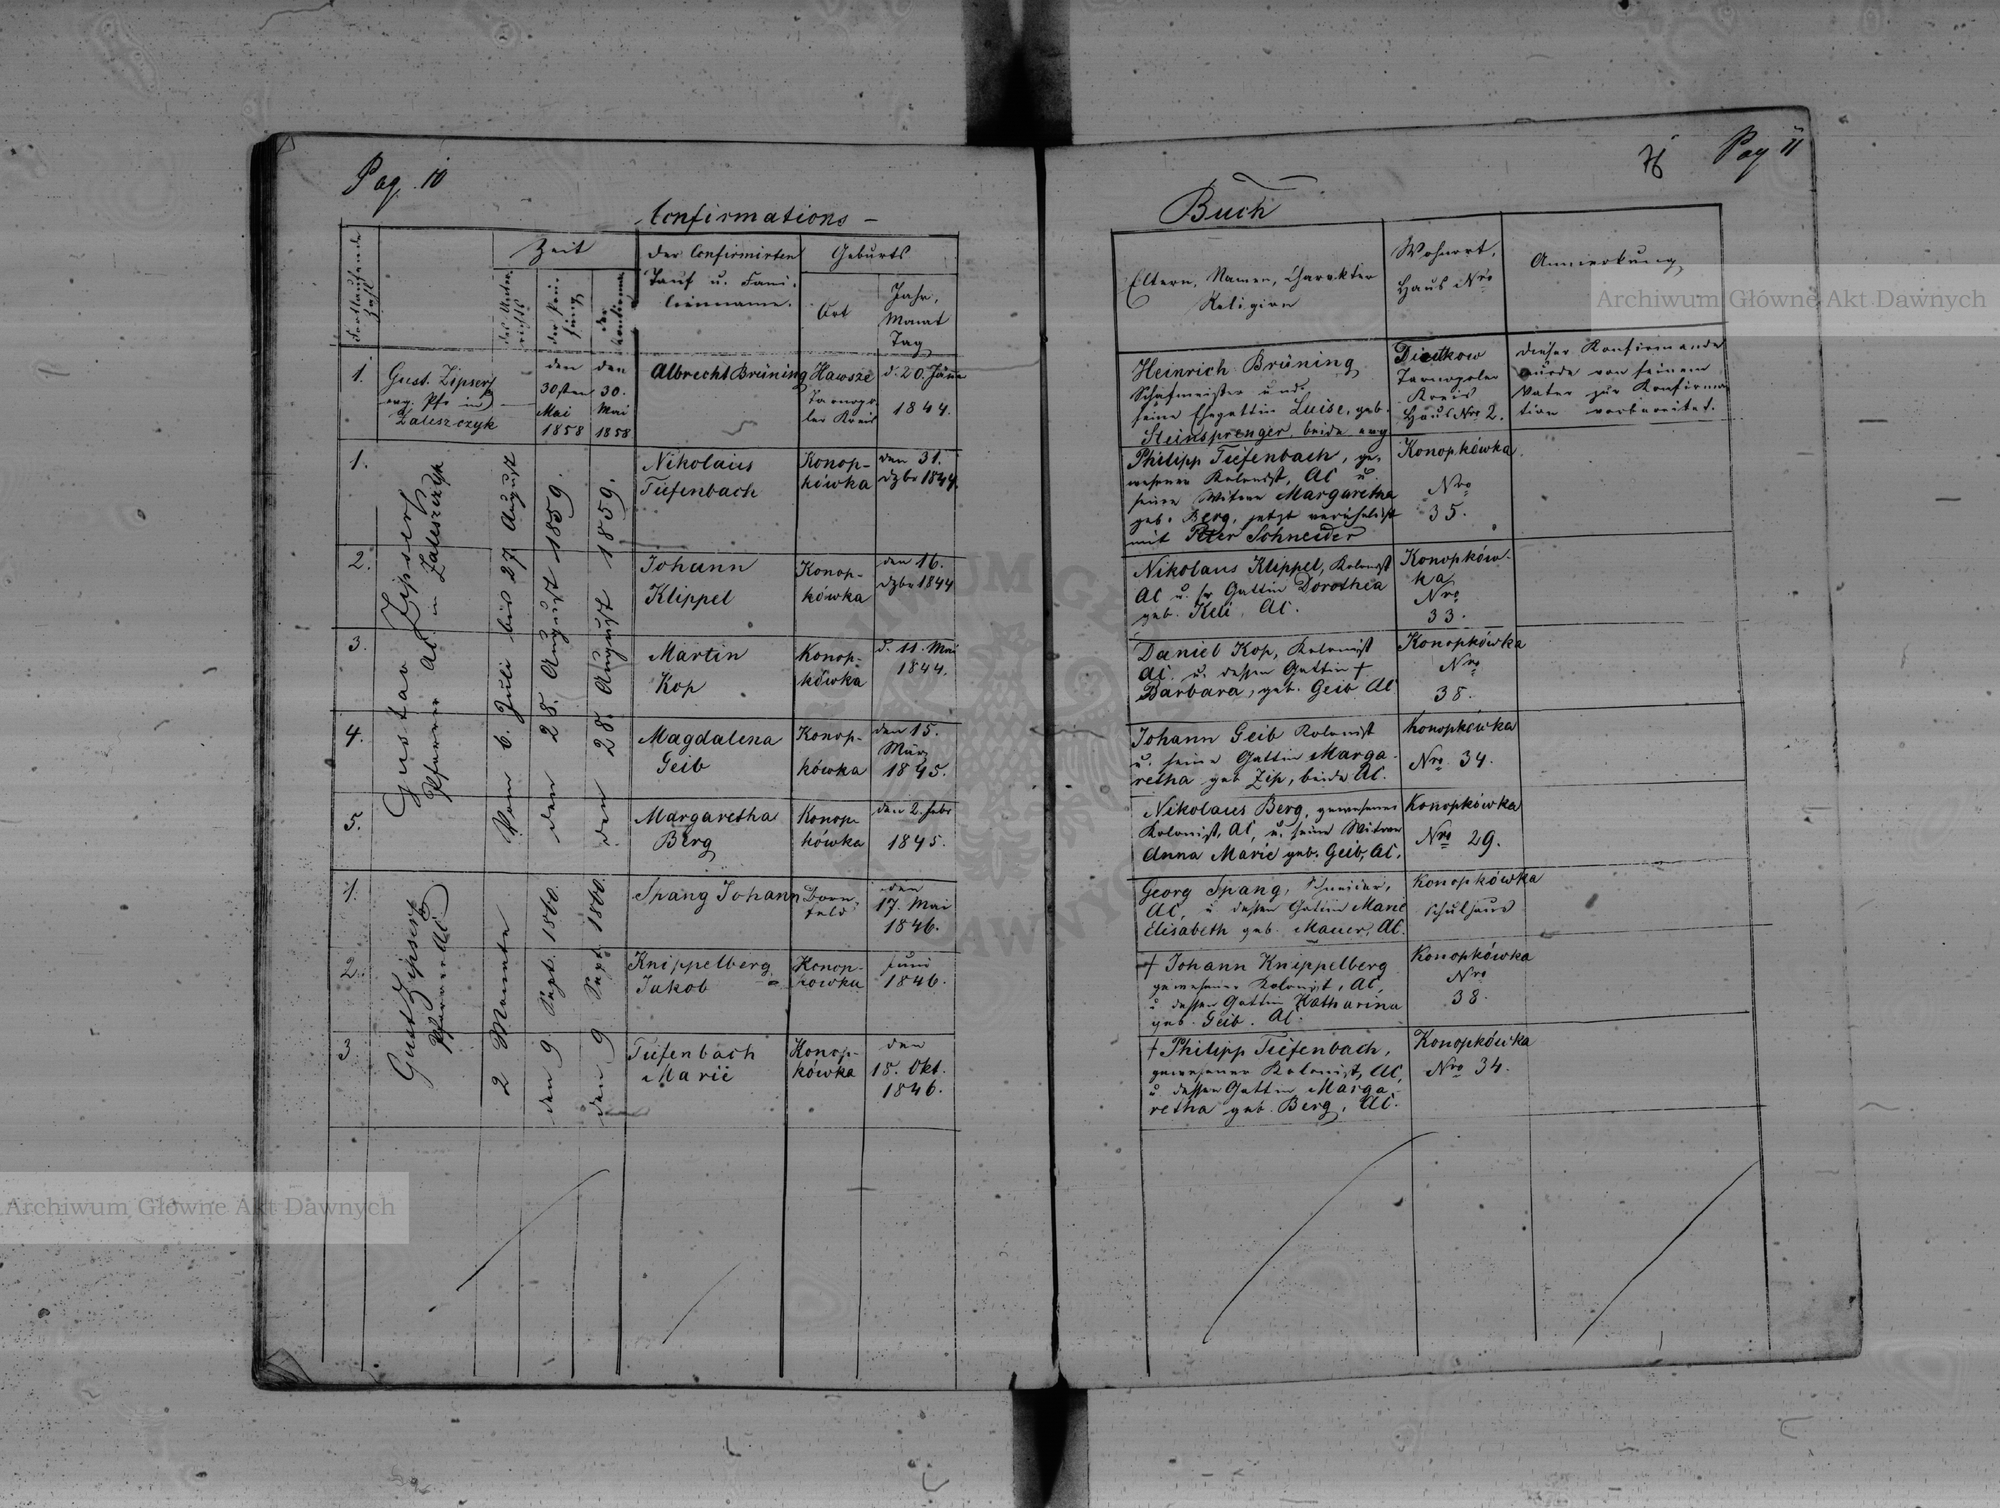 Pag. 10
Confirmations –
Fortlaufende Zahl
Zeit
des Unter-
richts
der Prü-
fung
der
Confirmat.
der Confirmirten
Tauf u. Fami-
lienname.
Geburts
Ort
Jahr,
Monat
Tag
1.
Gust. Zipser
evg. Pfr in
Zaleszczyk
den
30sten
Mai
1858
den
30.
Mai
1858
Albrecht Brüning
Hawsze
Tarnopo-
ler Kreis
d. 20. Jänn
1844.
Gustav Zipser
Pfarrer AC. in Zaleszczyk
Vom 6. Juli bis 27 August
den 28. August 1859.
den 28. August 1859.
1.
Nikolaus
Tiefenbach
Konop-
kówka
den 31.
Dzbr 1844.
2.
Johann
Klippel
Konop-
kówka
den 16.
Dzbr 1844
3.
Martin
Kop
Konop-
kówka
d. 11. Mai
1844.
4.
Magdalena
Geib
Konop-
kówka
den 15.
März
1845.
5.
Margaretha
Berg
Konop-
kówka
den 2. Febr
1845.
Gust Zipser
Pfarrer AC
2 Monate
den 9 Sept. 1860.
den 9 Sept 1860.
1.
Spang Johann
Dorn-
feld
den
17. Mai
1846.
2.
Knippelberg
Jakob
Konop-
kowka
Juni
1846.
3
Tiefenbach
Marie
Konop-
kówka
den
18. Okt.
1846.
Pag 11
Buch
Eltern, Namen, Charakter
Religion
Wohnort,
Haus Nro
Anmerkung
Heinrich Brüning
Schafmeister und
seine Ehegattin Luise, geb.
Steinsprenger, beide evg
Dietkow
Tarnopoler
Kreis
Haus Nro 2.
Dieser Konfirmande
wurde von seinem
Vater zur Konfirma-
tion vorbereitet.
Philipp Tiefenbach, ge-
wesener Kolonist, AC u.
seine Witwe Margaretha
geb. Berg, jetzt verehelicht
mit Peter Schneider
Konopkówka
Nro
35.
Nikolaus Klippel, Kolonist
AC u. sr Gattin Dorothea
geb. Keli, AC.
Konopków-
ka
Nro
33.
Daniel Kop, Kolonist
AC. u. dessen Gattin †
Barbara, geb. Geib AC
Konopkówka
Nro
38.
Johann Geib Kolonist
u. seine Gattin Marga-
retha geb Zip, beide AC.
Konopkówka
Nro 34.
Nikolaus Berg, gewesener
Kolonist, AC, u. seine Witwe
Anna Marie geb. Geib, AC.
Konopkówka
Nro 29.
Georg Spang, Schneider,
AC, u dessen Gattin Marie
Elisabeth geb. Mauer, AC.
Konopkówka
Schulhaus
† Johann Knippelberg
gewesener Kolonist, AC,
u dessen Gattin Katharina
geb. Geib. AC.
Konopkówka
Nro
38.
† Philipp Tiefenbach,
gewesener Kolonist, AC,
u dessen Gattin Marga-
retha geb. Berg, AC.
Konopkówka
Nro 34.
Archiwum Główne Akt Dawnych
Archiwum Główne Akt Dawnych